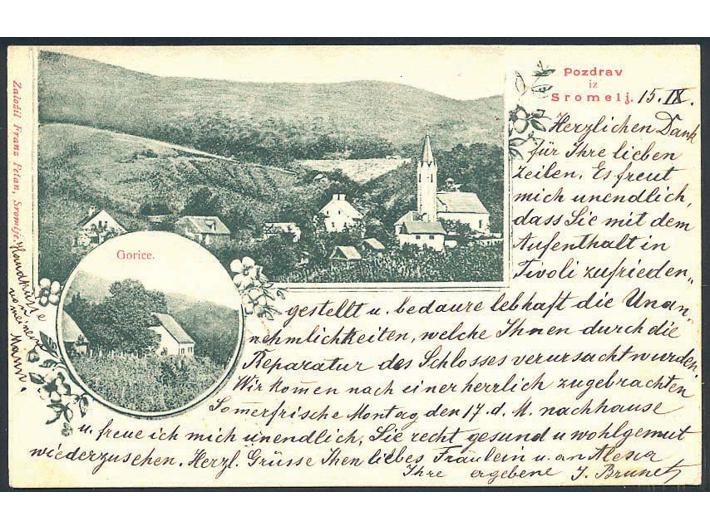 Pozdrav
iz
Sromelj. 15. IX.
Herzlichen Dank
für Ihre lieben
Zeilen. Es freut
mich unendlich,
dass Sie mit dem
Aufenthalt in
Tivoli zufrieden„
gestellt u. bedaure lebhaft die Unan„
nehmlichkeiten, welche Ihnen durch die
Reparatur des Schlosses verursacht wurden.
Wir kom̄en nach einer herrlich zugebrachten
Som̄erfrische Montag den 17. d. M. nachhause
u. freue ich mich unendlich, Sie recht gesund u wohlgemut
wiederzusehen. Herzl. Grüsse Ihen liebes Fräulein u. an Alexa
Ihre ergebene J. Brunetz
Gorice.
Založil Franz Petan, Sromlje.
Handküsse
von meinem
Mann.